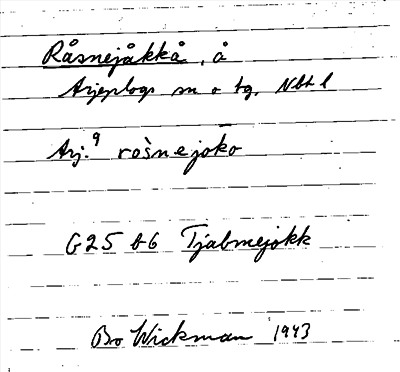 Råsnejåkkå, å
Arjeplogs sn o tg. Nbt l
Arj. 9 rośnejoko
G25 b6 Tjabmejokk
Bo Wickman 1943